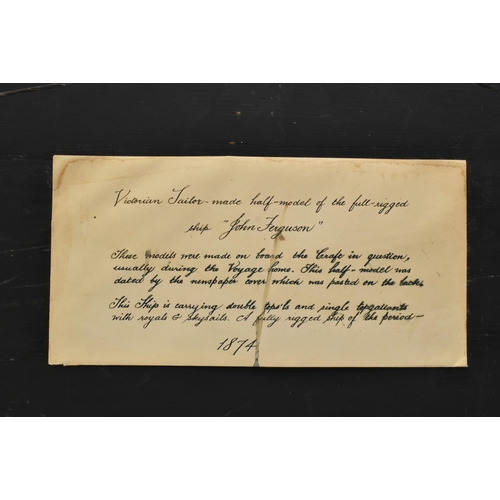 Victorian Sailor-made half-model of the full-rigged
ship "John Ferguson"
These models were made on board the Craft in question,
usually during the Voyage home. This half-model was
dated by the newspaper cover which was pasted on the back.
This Ship is carrying double tops'ls and single topgallants
with royals & skysails. A fully rigged ship of the period—
1874